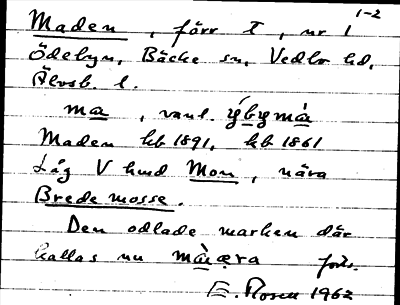 1-2
Maden, förr T, nr 1
Ödebyn, Bäcke sn, Vedbo hd,
Älvsb. l.
ma, vanl. ýbymà
Maden hb 1891, hb 1861
Låg V hmd Mon, nära
Brede mosse.
Den odlade marken där
kallas nu màæra
E. Rosen 1962